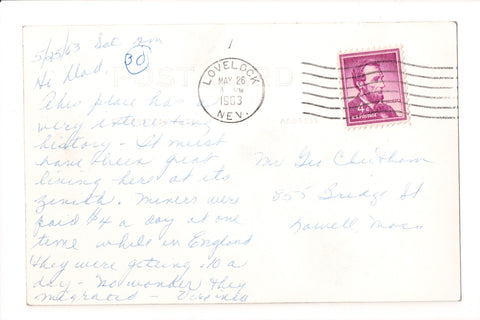 5/25/63 Sat pm
30
Hi Dad,
This place has a
very interesting
history - It must
have been great
living here at its
zenith. Miners were
paid $4 a day at one
time while in England
they were getting .10 a
day - no wonder they
migrated - Virginia
LOVELOCK
MAY 26
PM
1963
NEV.
4¢
U.S. POSTAGE
POST CARD
ADDRESS
Mr Geo Cheetham
855 Bridge St
Lowell Mass